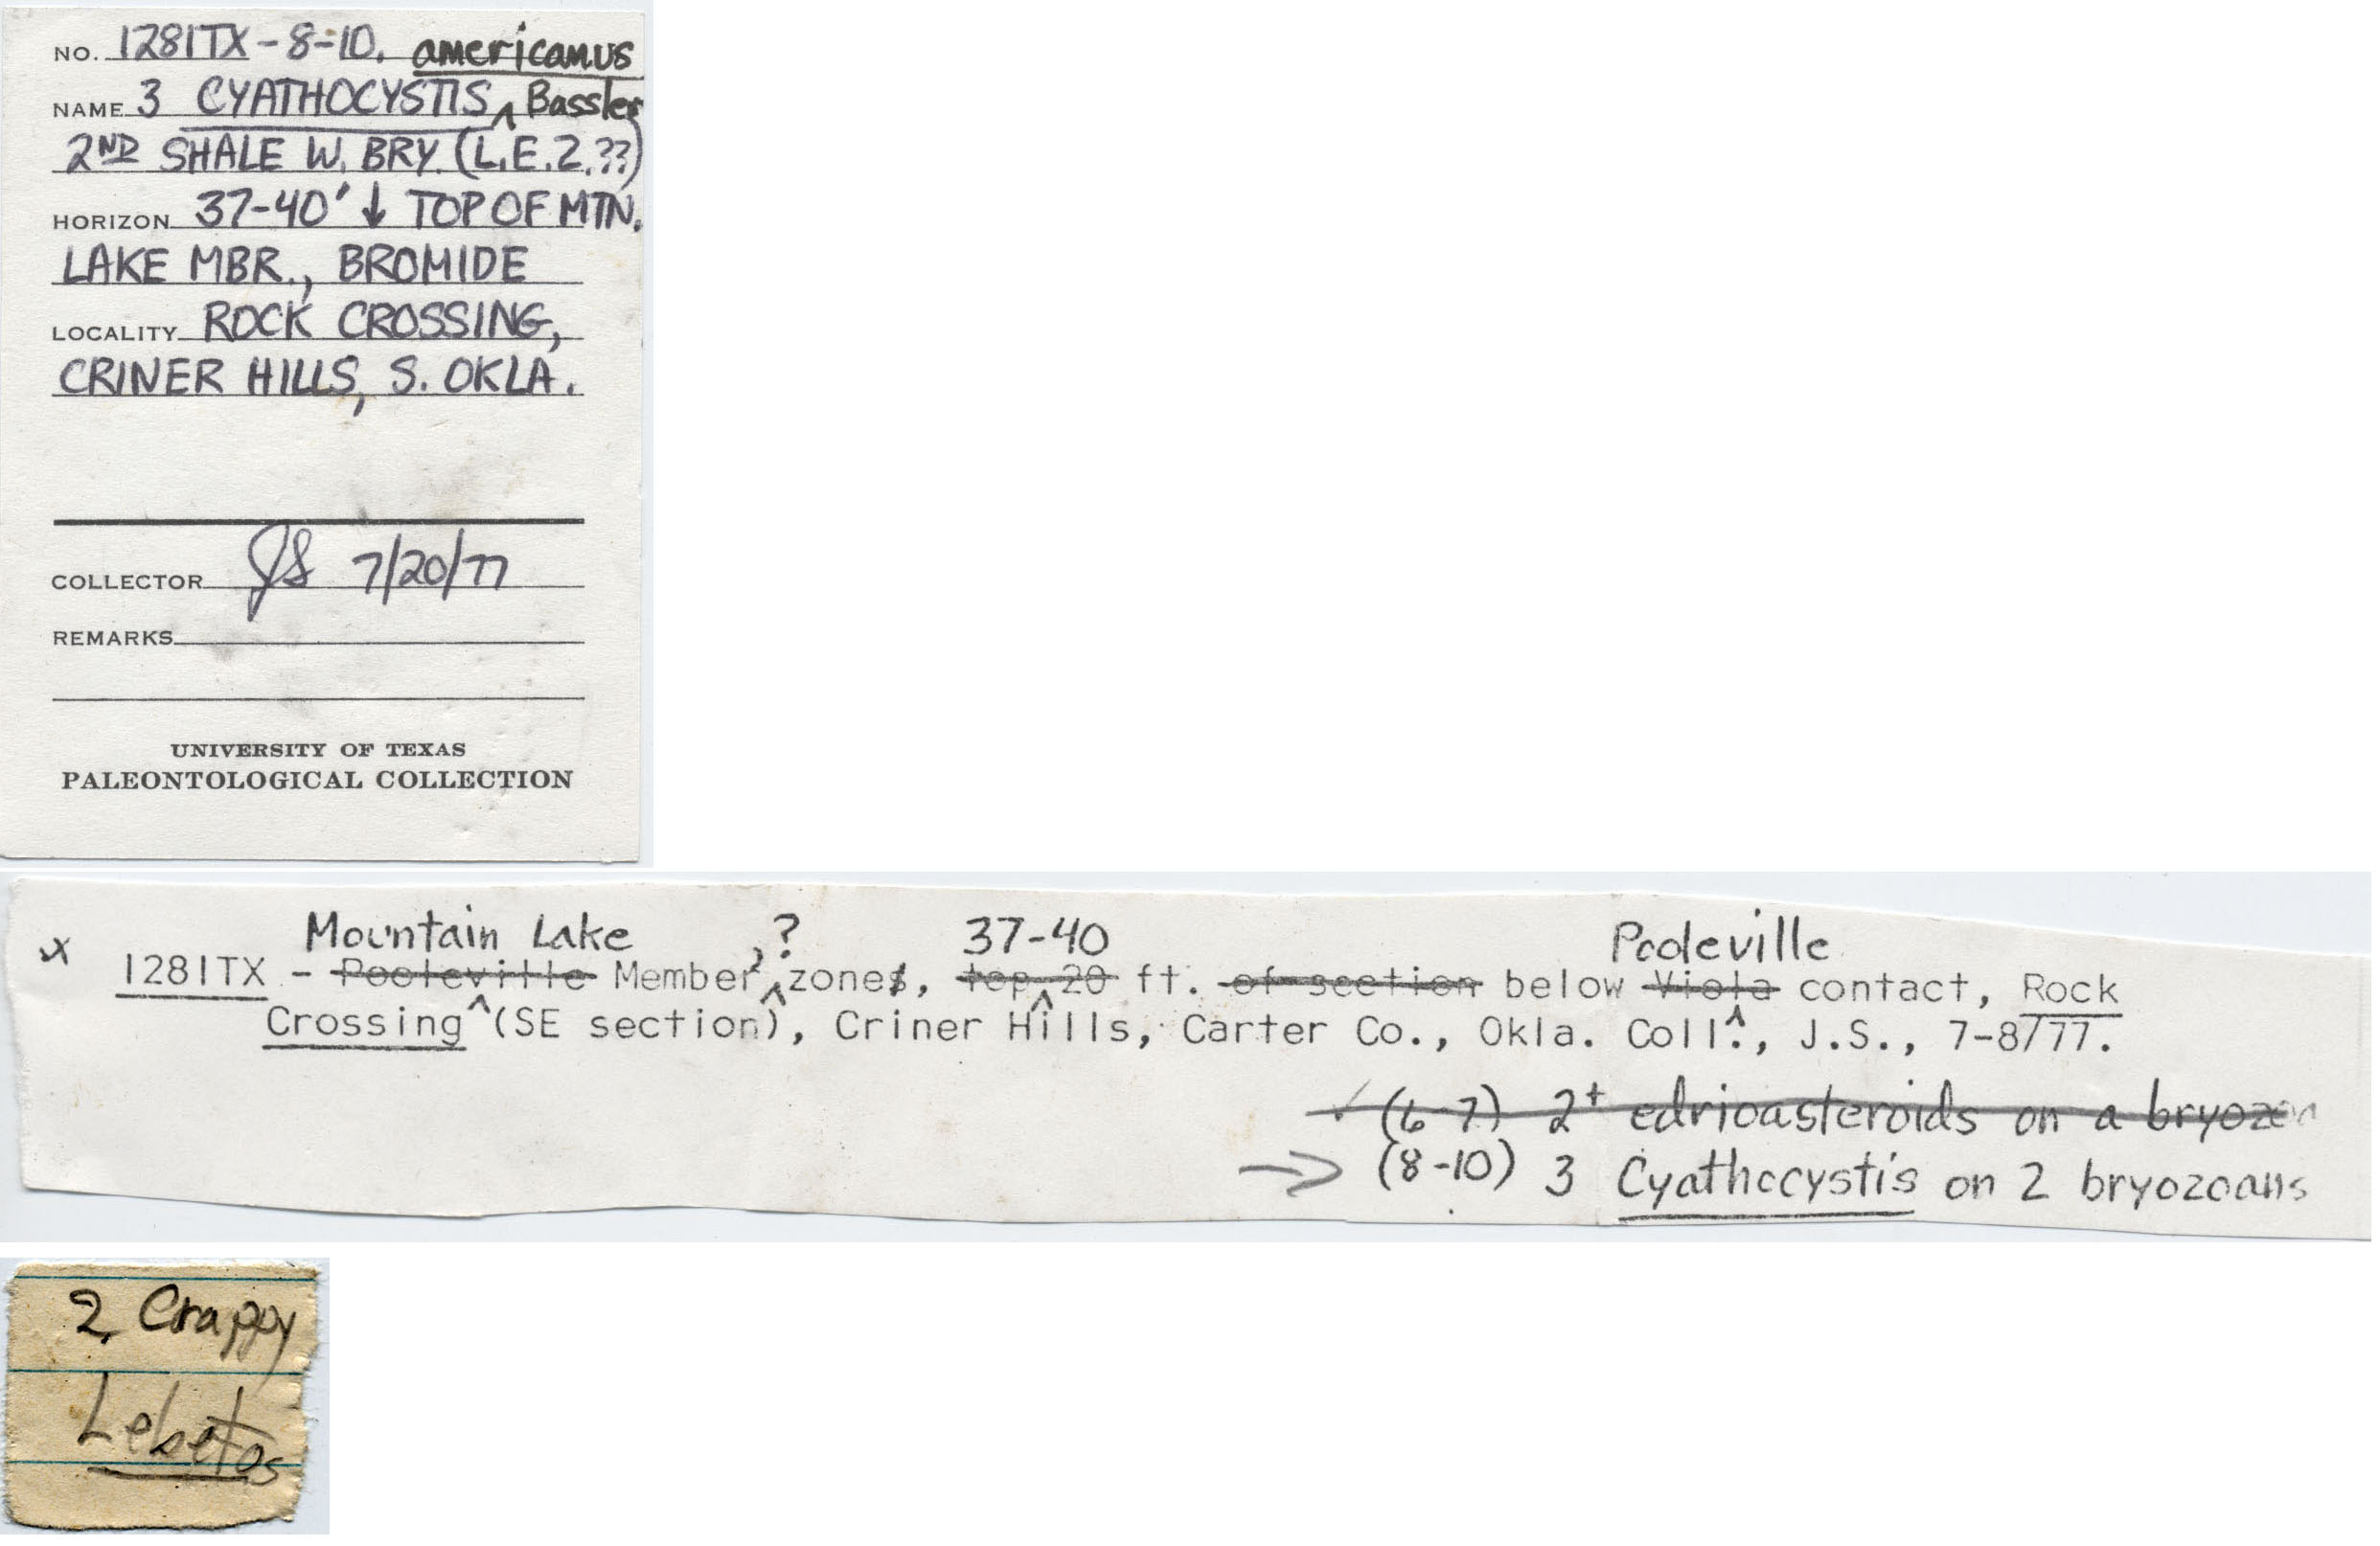 NO. 1281TX-8-10. americanus
NAME 3 CYATHOCYSTIS ^ Bassler
2ND SHALE W. BRY. (L.E.Z.??)
HORIZON 37-40' ↓ TOP OF MTN.
LAKE MBR., BROMIDE
LOCALITY ROCK CROSSING,
CRINER HILLS, S. OKLA.
COLLECTOR JS 7/20/77
REMARKS
UNIVERSITY OF TEXAS
PALEONTOLOGICAL COLLECTION
Mountain Lake ,? 37-40 Pooleville
x 1281TX - Pooleville Member, zones, top 20 ft. of section below Viola contact, Rock
Crossing (SE section), Criner Hills, Carter Co., Okla. Coll., J.S., 7-8/77.
✓ (6-7) 2+ edrioasteroids on a bryozoan
→ (8-10) 3 Cyathocystis on 2 bryozoans
2 Crappy
Lebetos